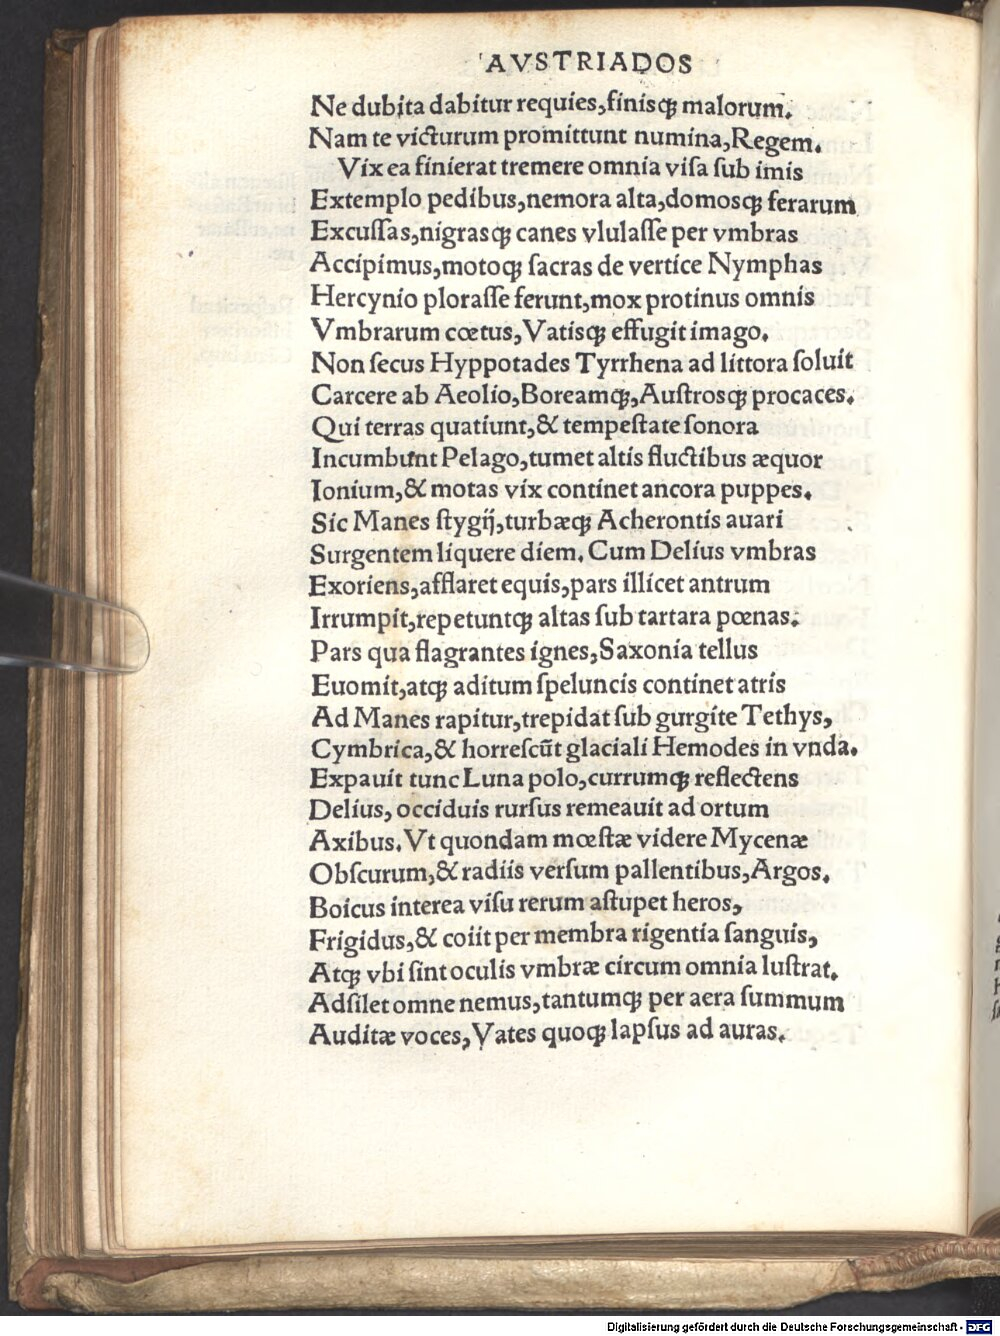 AVSTRIADOS
Ne dubita dabitur requies,finisqꝫ malorum.
Nam te victurum promittunt numina,Regem.
Vix ea finierat tremere omnia viſa ſub imis
Extemplo pedibus,nemora alta,domosqꝫ ferarum
Excuſſas,nigrasqꝫ canes vlulaſſe per vmbras
Accipimus,motoqꝫ ſacras de vertice Nymphas
Hercynio ploraſſe ferunt,mox protinus omnis
Vmbrarum cœtus,Vatisqꝫ effugit imago.
Non ſecus Hyppotades Tyrrhena ad littora ſoluit
Carcere ab Aeolio,Boreamqꝫ,Auſtrosqꝫ procaces.
Qui terras quatiunt,& tempeſtate ſonora
Incumbunt Pelago,tumet altis fluctibus æquor
Ionium,& motas vix continet ancora puppes.
Sic Manes ſtygij,turbæqꝫ Acherontis auari
Surgentem liquere diem. Cum Delius vmbras
Exoriens,afflaret equis,pars illicet antrum
Irrumpit,repetuntqꝫ altas ſub tartara pœnas.
Pars qua flagrantes ignes,Saxonia tellus
Euomit,atqꝫ aditum ſpeluncis continet atris
Ad Manes rapitur,trepidat ſub gurgite Tethys,
Cymbrica,& horreſcūt glaciali Hemodes in vnda.
Expauit tunc Luna polo,currumqꝫ reflectens
Delius, occiduis rurſus remeauit ad ortum
Axibus. Vt quondam mœſtæ videre Mycenæ
Obſcurum,& radiis verſum pallentibus,Argos.
Boicus interea viſu rerum aſtupet heros,
Frigidus,& coiit per membra rigentia ſanguis,
Atqꝫ vbi ſint oculis vmbræ circum omnia luſtrat.
Adſilet omne nemus,tantumqꝫ per aera ſummum
Auditæ voces,Vates quoqꝫ lapſus ad auras.
Digitalisierung gefördert durch die Deutsche Forschungsgemeinschaft - DFG